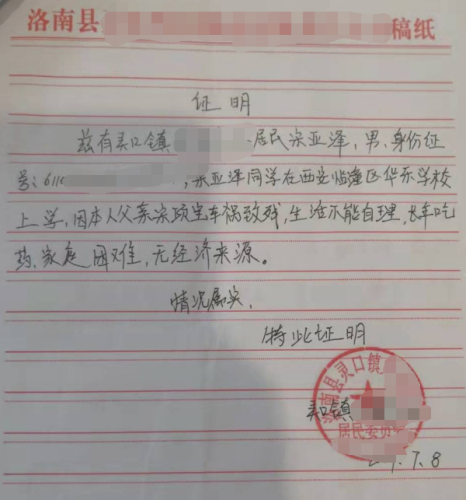 洛南县 稿纸
证明
兹有灵口镇 居民宗亚泽,男,身份证
号:611 ,宗亚泽同学在西安临潼区华乐学校
上学,因本人父亲宗项出车祸致残,生活不能自理,长年吃
药,家庭困难,无经济来源。
情况属实,
特此证明
灵口镇
洛南县灵口镇
居民委员
7.8